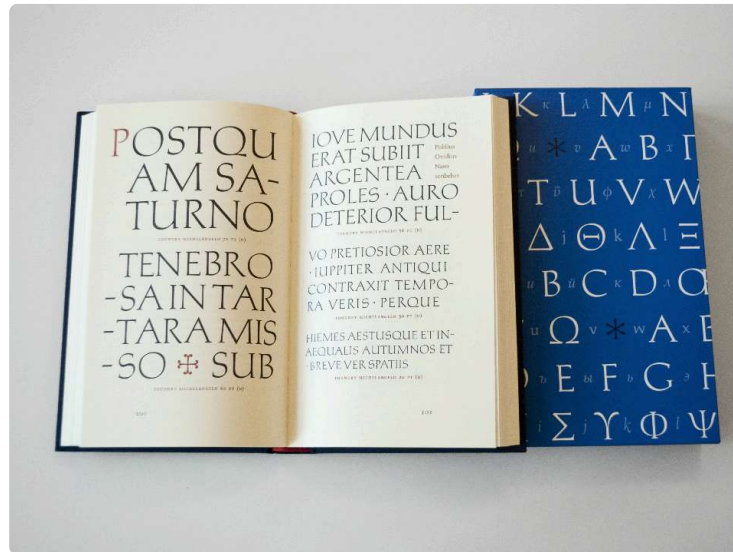 POSTQU
AM SA-
TURNO
TENEBRO
-SA IN TAR
-TARA MIS
-SO ✠ SUB
IOVE MUNDUS
ERAT SUBIIT
ARGENTEA
PROLES · AURO
DETERIOR FUL-
Publius
Ovidius
Naso
scribebat
VO PRETIOSIOR AERE
· IUPPITER ANTIQUI
CONTRAXIT TEMPO-
RA VERIS · PERQUE
HIEMES AESTUSQUE ET IN-
AEQUALIS AUTUMNOS ET
· BREVE VER SPATIIS
K κ L λ M μ N
* v A w B x Γ
T U φ V χ W
Δ j Θ k Λ Ξ
B C D Λ
u Ω v * w A x
E F G э H
Σ j Υ k Φ l Ψ